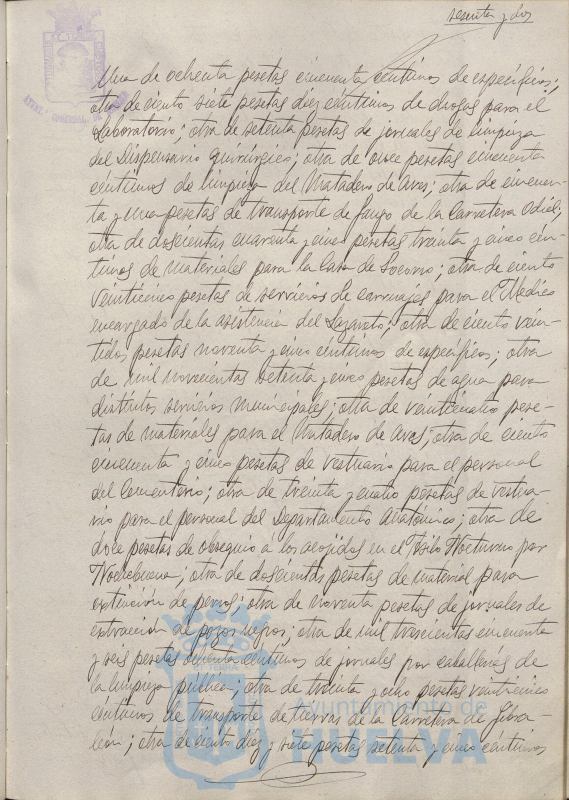 sesenta y dos
Una de ochenta pesetas cincuenta céntimos de específicos;
otra de ciento siete pesetas diez céntimos de drogas para el
Laboratorio; otra de setenta pesetas de jornales de limpieza
del Dispensario quirúrgico; otra de once pesetas cincuenta
céntimos de limpieza del Matadero de Aves; otra de cincuen-
ta y una pesetas de transporte de fango de la Carretera Odiel;
otra de doscientas cuarenta y cinco pesetas treinta y cinco cén-
timos de materiales para la Casa de Socorro; otra de ciento
veinticinco pesetas de servicios de carruajes para el Médico
encargado de la asistencia del Lazareto; otra de ciento vein-
tidos pesetas noventa y cinco céntimos de específicos; otra
de mil novecientas setenta y cinco pesetas de agua para
distintos servicios municipales; otra de veinticuatro pese-
tas de materiales para el Matadero de Aves; otra de ciento
cincuenta y cinco pesetas de vestuario para el personal
del Cementerio; otra de treinta y cuatro pesetas de vestua-
rio para el personal del Departamento Anatómico; otra de
doce pesetas de obsequio a los acojidos en el Asilo Nocturno por
Nochebuena; otra de doscientas pesetas de material para
extinción de perros; otra de noventa pesetas de jornales de
extracción de pozos negros; otra de mil trescientas cincuenta
y seis pesetas ochenta céntimos de jornales por caballerías de
la limpieza pública; otra de treinta y ocho pesetas veinticinco
céntimos de transporte de tierras de la Carretera de Gibra-
león; otra de ciento diez y siete pesetas setenta y cinco céntimos
Ayuntamiento de
HUELVA